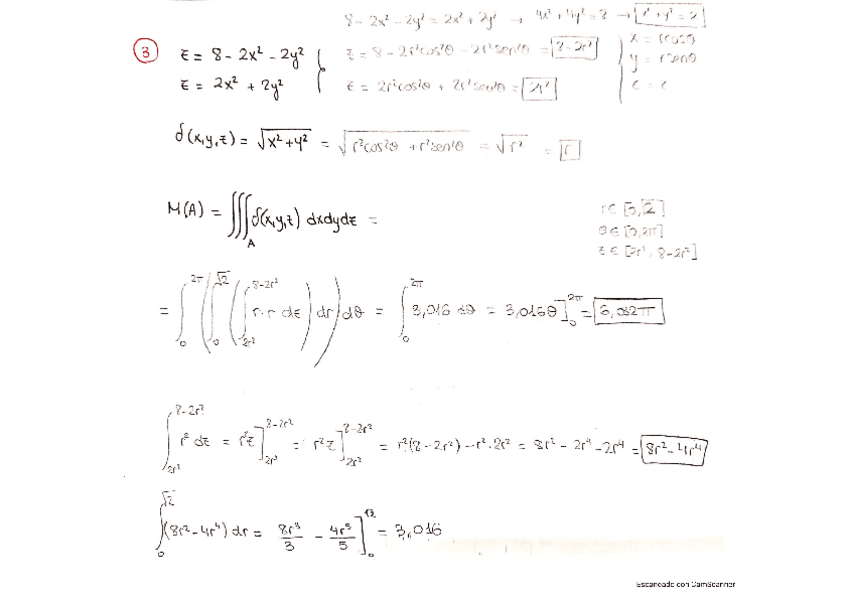 8 - 2x² - 2y² = 2x² + 2y² → 4x² + 4y² = 8 → x² + y² = 2
③ z = 8 - 2x² - 2y² { z = 8 - 2r²cos²θ - 2r²sen²θ = 8 - 2r² | x = rcosθ
z = 2x² + 2y² { z = 2r²cos²θ + 2r²sen²θ = 2r² | y = rsenθ
z = z
δ(x,y,z) = √x² + y² = √r²cos²θ + r²sen²θ = √r² = r
M(A) = ∭_A δ(x,y,z) dxdydz =
r ∈ [0,√2]
θ ∈ [0,2π]
z ∈ [2r², 8-2r²]
= ∫₀^2π (∫₀^√2 (∫_2r²^8-2r² r·r dz) dr) dθ = ∫₀^2π 3,016 dθ = 3,016θ]₀^2π = 6,032π
∫_2r²^8-2r² r² dz = r²z]_2r²^8-2r² = r²z]_2r²^8-2r² = r²(8-2r²) - r²·2r² = 8r² - 2r⁴ - 2r⁴ = 8r² - 4r⁴
∫₀^√2 (8r² - 4r⁴) dr = 8r³/3 - 4r⁵/5]₀^√2 = 3,016
Escaneado con CamScanner